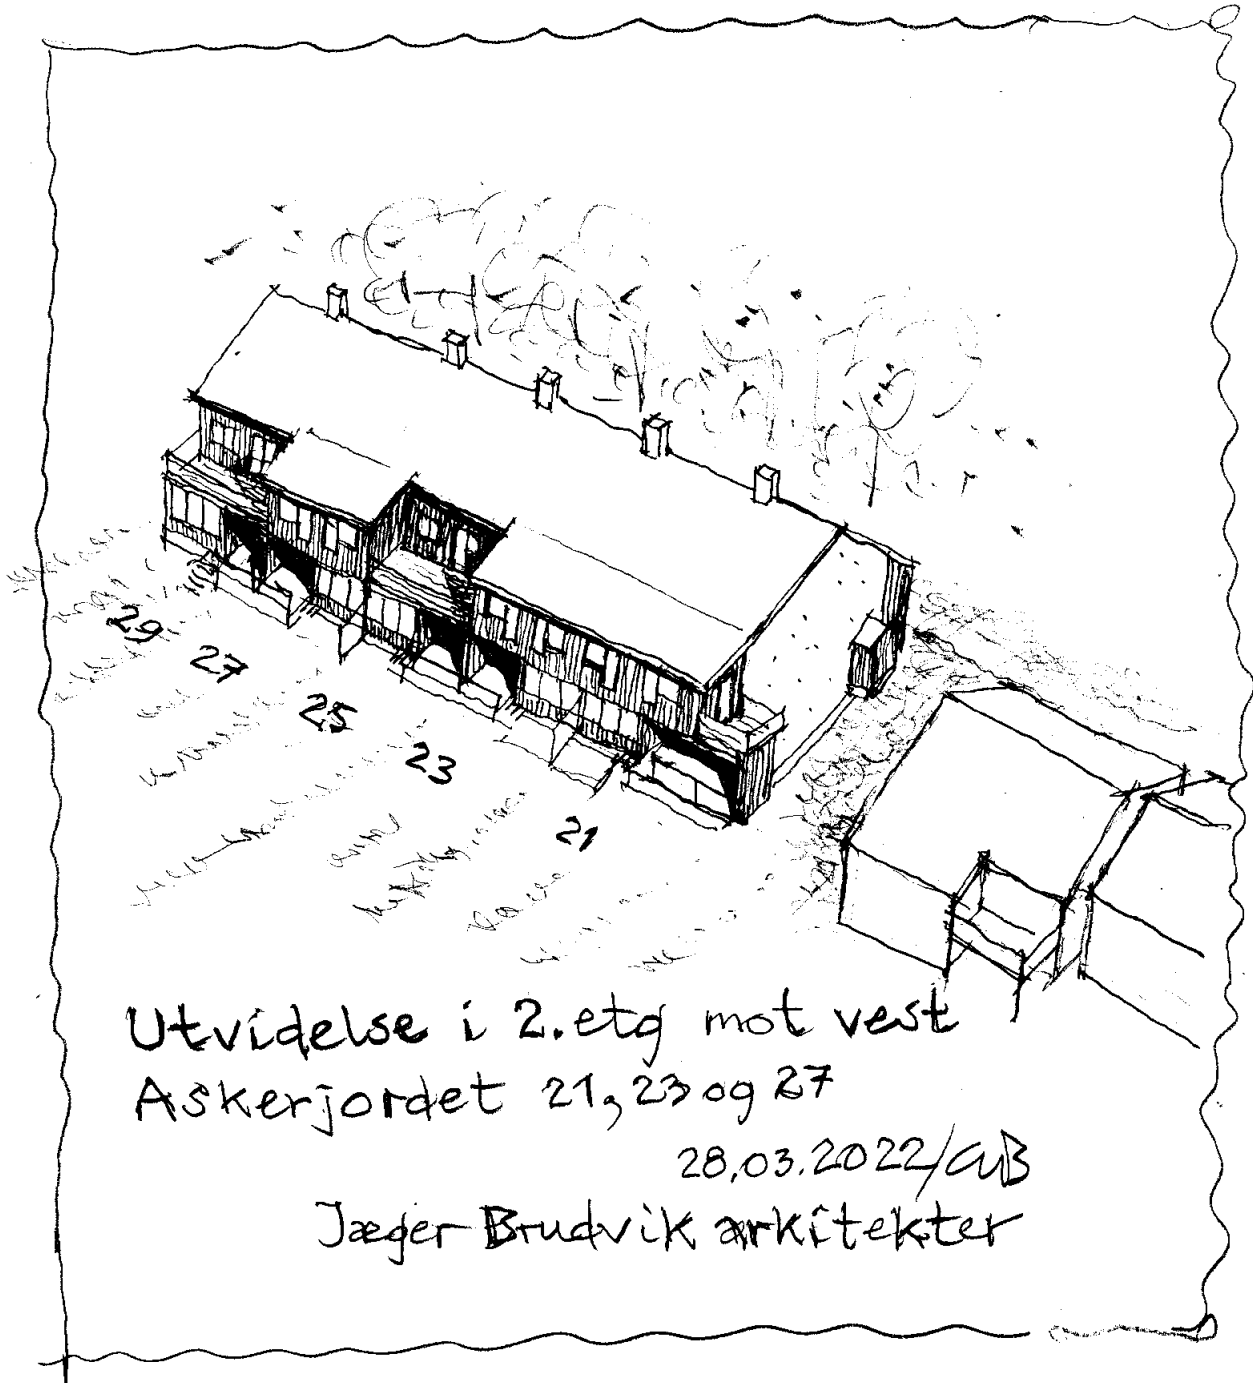 29
27
25
23
21
Utvidelse i 2.etg mot vest
Askerjordet 21, 23 og 27
28.03.2022/AB
Jæger Brudvik arkitekter